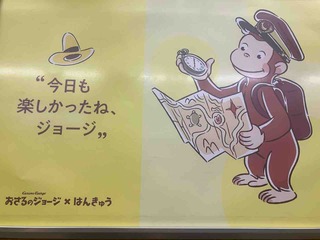 “今日も
楽しかったね、
ジョージ„
Curious George
おさるのジョージ×はんきゅう